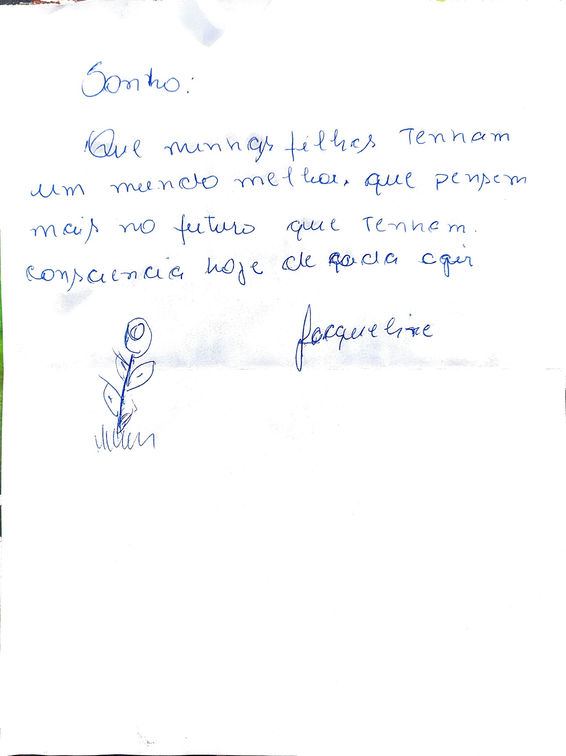 Sonho:
Que minhas filhas tenham
um mundo melhor, que pensem
mais no futuro que tenham.
consciencia hoje de cada agir
Jacqueline